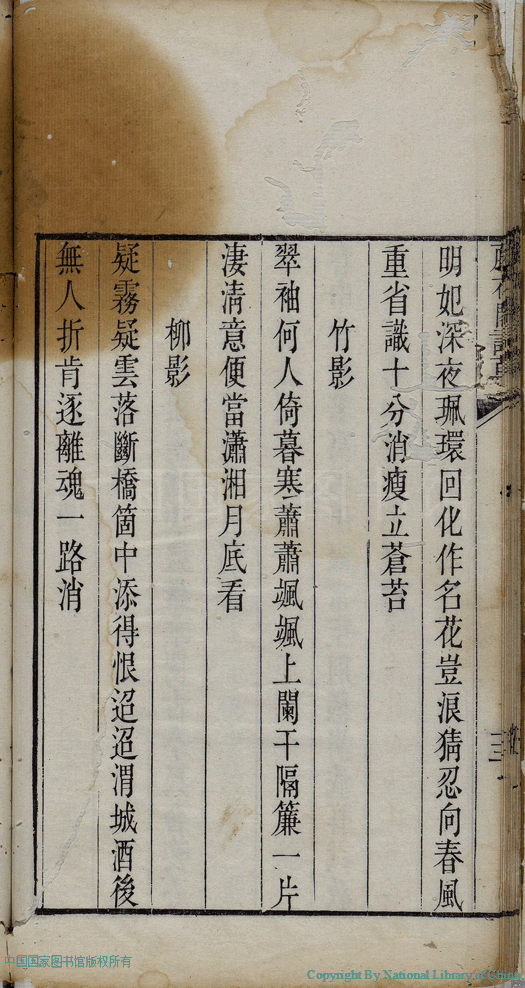 明妃深夜珮環回化作名花豈浪猜忍向春風
重省識十分消瘦立蒼苔
竹影
翠袖何人倚暮寒蕭蕭颯颯上闌干隔簾一片
淒清意便當瀟湘月底看
柳影
疑霧疑雲落斷橋箇中添得恨迢迢渭城酒後
無人折肯逐離魂一路消
三
中国国家图书馆版权所有
Copyright By National Library of China